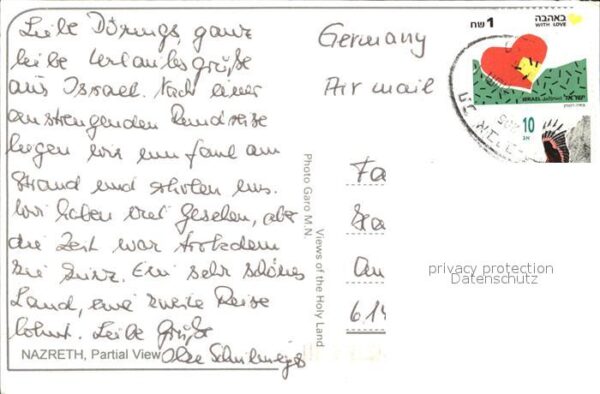 Liebe Dörings, ganz
liebe Urlaubsgrüße
aus Israel. Nach einer
anstrengenden Rundreise
liegen wir nun faul am
Strand und erholen uns.
Wir haben viel gesehen, aber
die Zeit war trotzdem
zu kurz. Ein sehr schönes
Land, eine zweite Reise
lohnt. Liebe Grüße
NAZRETH, Partial View
Photo Garo M.N.
Views of the Holy Land
Germany
Air mail
1 שח
באהבה
WITH LOVE
ISRAEL
ישראל
10
אג
Fa
An
614
privacy protection
Datenschutz